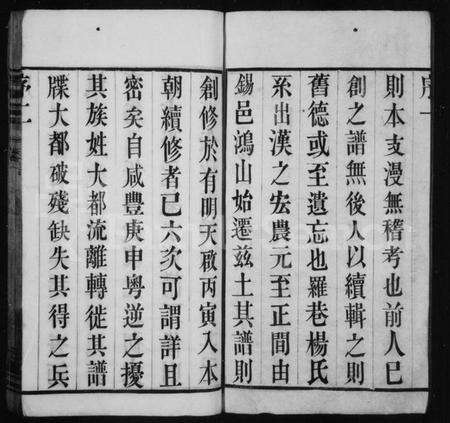 序一
則本支漫無稽考也前人已
創之譜無後人以續輯之則
舊德或至遺忘也羅巷楊氏
系出漢之宏農元至正間由
錫邑鴻山始遷茲土其譜則
創修於有明天啟丙寅入本
朝續修者已六次可謂詳且
密矣自咸豐庚申粵逆之擾
其族姓大都流離轉徙其譜
牒大都破殘缺失其得之兵
序二